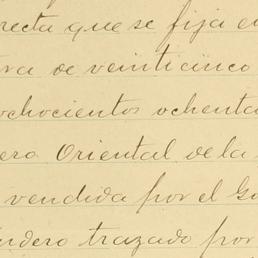 recta que se fija en
va de veinticinco
ochocientos ochenta
dero Oriental de la
vendida por el Go
ndero trazado por